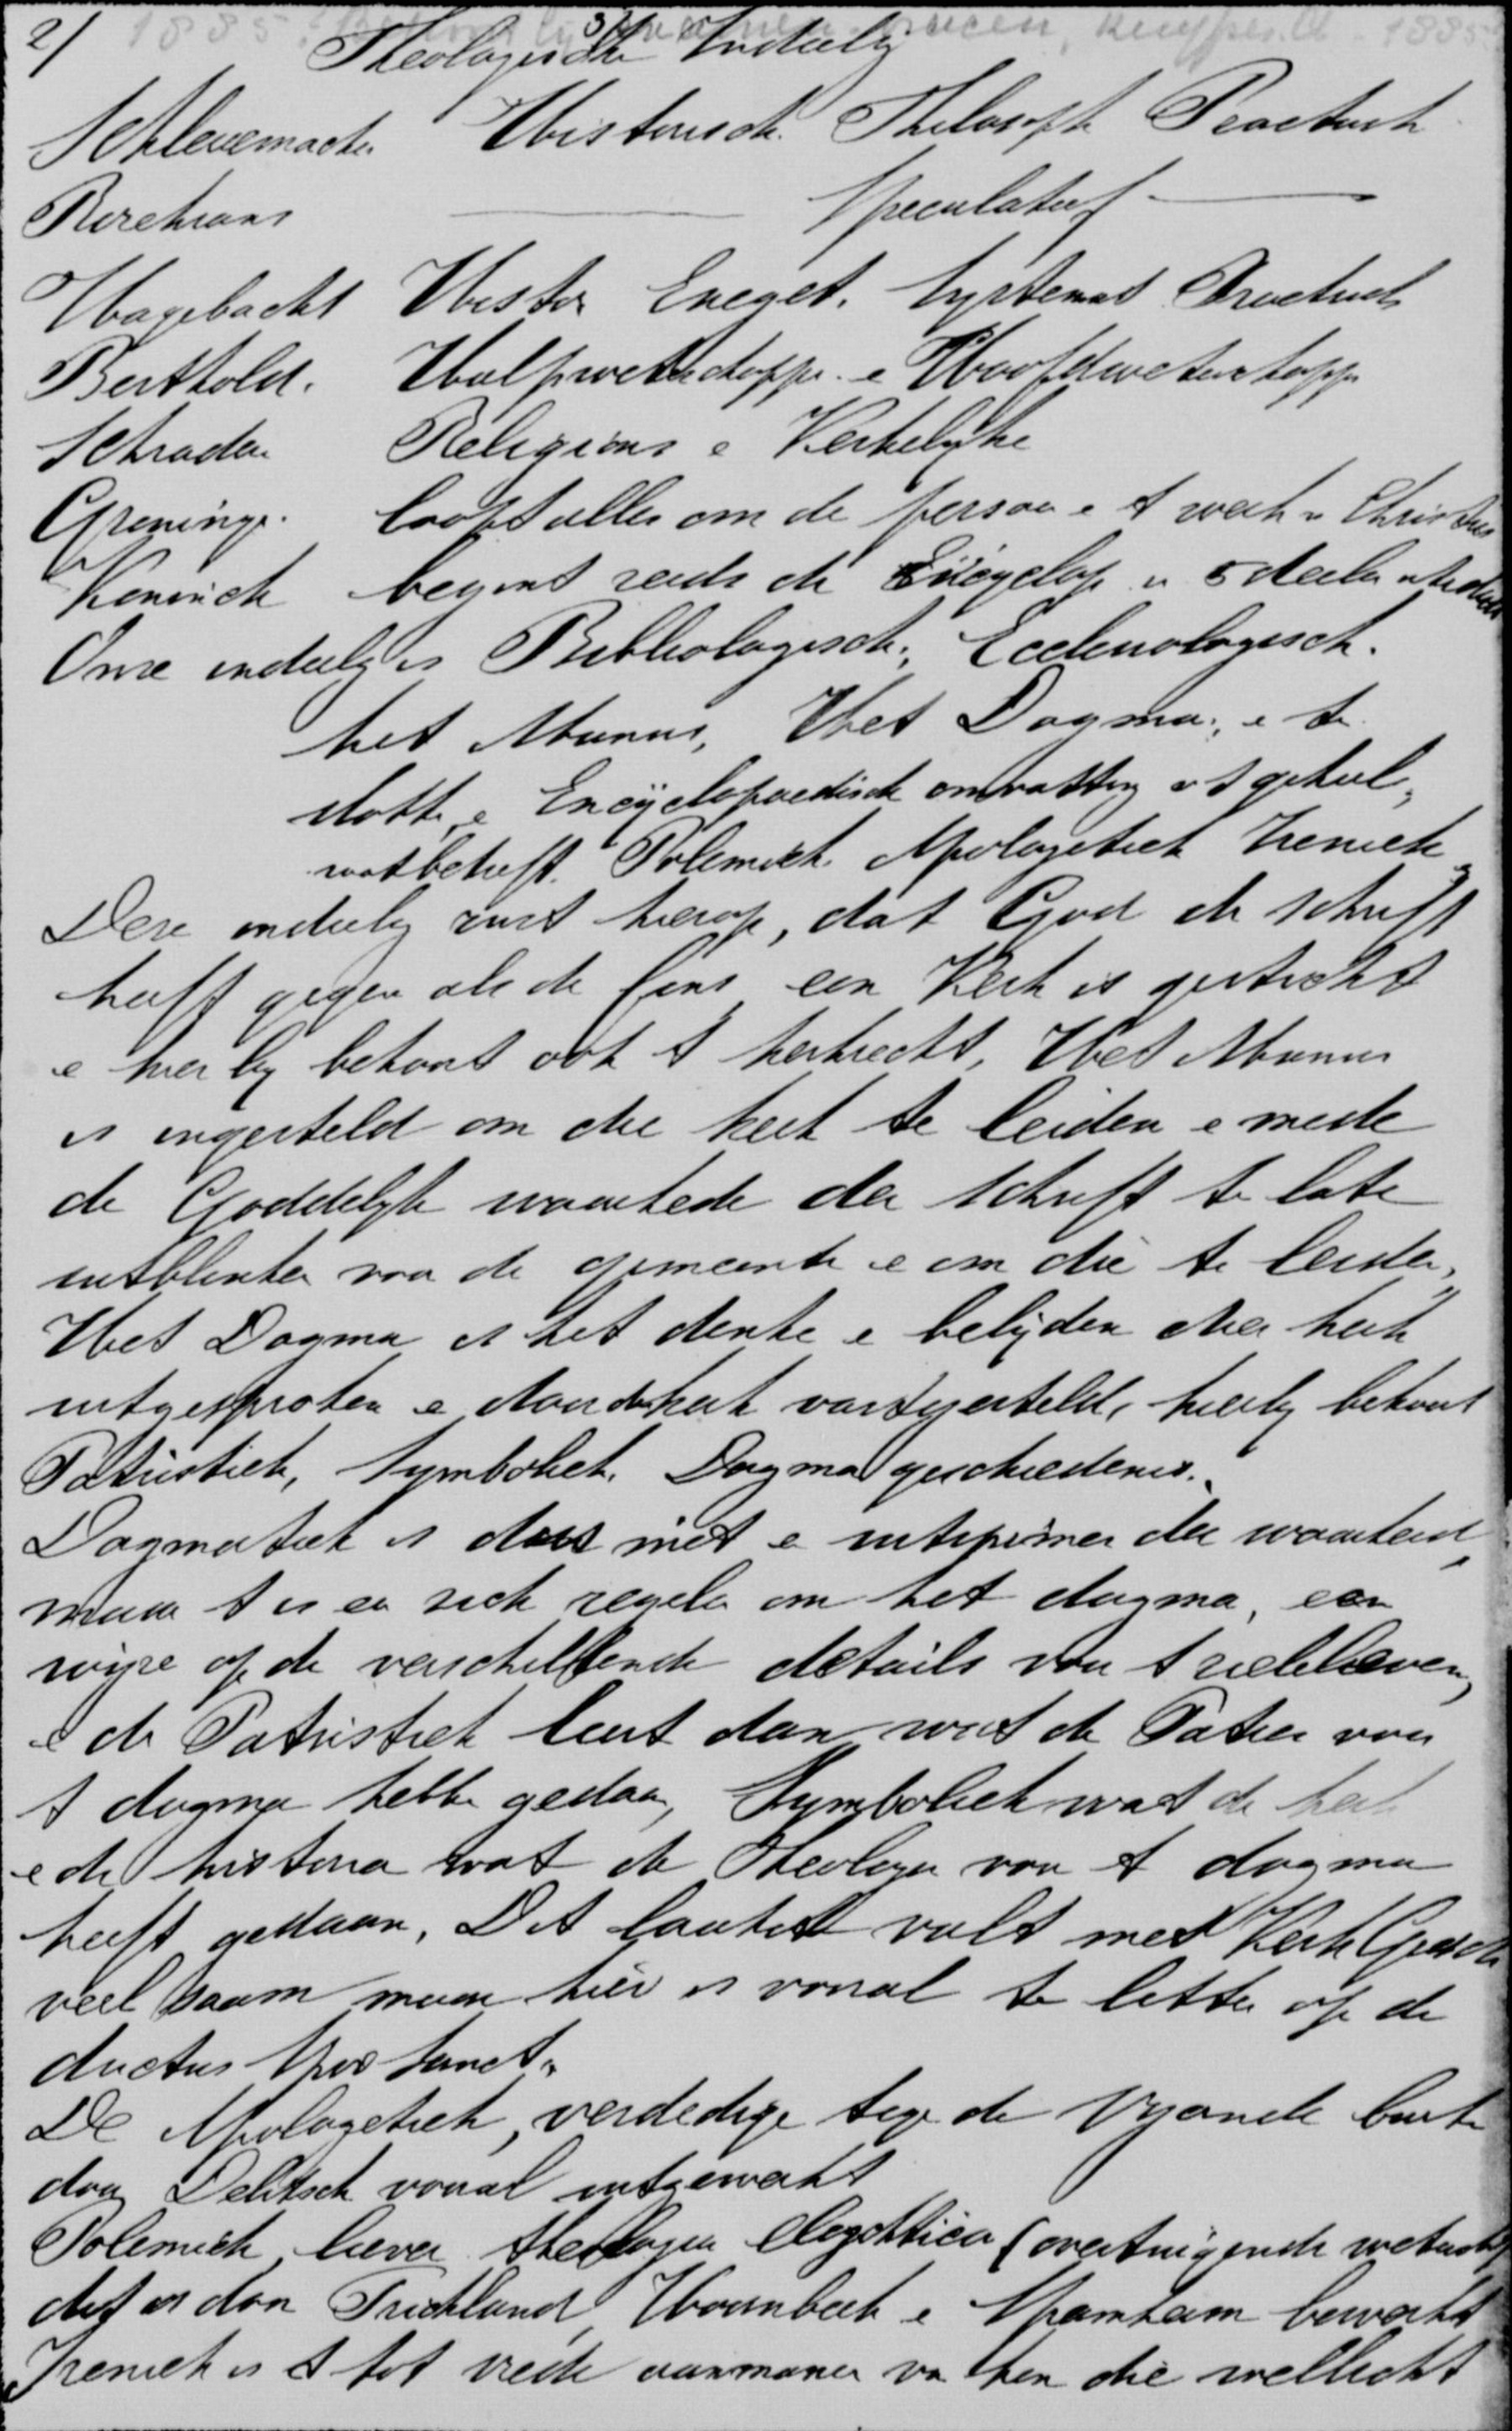 2/
Theologische Indeelig
Schleiermacher Historisch. Philosoph Practisch
Speculatief
Hagebacht Histor Exeget. Systemat Practisch
Berthold. Hulpwetenschappe. e Hoofdwetenschapp
Schrader Religions e Kerkelyke
Groninge. loopt alles om de persoon e t werk v Christus
begint reeds de Encyclop. in 5 deele
Onze indeelg is Bibliologisch; Ecclesiologisch.
het Munus, Het Dogma, e te
slotte, e Encÿclopaedisch omvattg v t geheel,
wat betreft. Polemiek Apologetiek Ireniek
Deze indeelig rust hierop, dat God de Schrift
heeft gegev als de fons, een Kerk is gesticht
e hier by behoort ook t kerkrecht, Het Munus
is ingesteld om die kerk te leiden e mede
de Goddelyke waarhede der Schrift te late
uitblinke voor de gemeente e om die te leide,
Het Dogma is het denke e belÿden dier kerk
uitgesproken e door de kerk vastgesteld, hierby behoort
Patristiek, Symboliek. Dogmageschiedenis.
Dogmatiek is dus niet e uitspinnen der waarheid
maar t is en zich regele om het dogma, een
wÿze op de verschillende details van t zieleleven,
e de Patristiek leert dan wat de Patres voor
t dogma hebbe gedaan, Symboliek wat de kerk
e de historia wat de Theologie voor t dogma
heeft gedaan, Dit laatste valt met Kerk Gesch
veel saam maar hier is vooral te lette op de
ductus Spir Sanct.
De Apologetiek, verdedige tege de Vyande buite
door Delitsch vooral uitgewerkt
Polemiek, liever theologia elenchtica (overtuigende wetensch)
dit is door Hoornbeek e Spanheim bewerkt
Ireniek is t tot vrede aanmanen va hen die wellicht